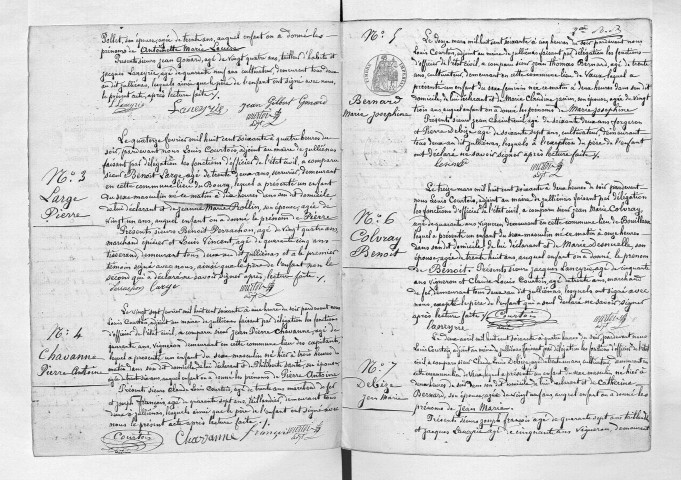 Pollet, son épouse, agée de trente ans, auquel enfant on a donné les
prénoms de Antoinette Marie Louise
Présents sieurs Jean Gonard, agé de vingt quatre ans, tailleur d'habits et
Jacques Laneyrie, agé de quarante neuf ans cultivateur, demeurant tous deux
audit Jullienas, lesquels ainsi que le père de l'enfant ont signé avec nous,
le présent acte, après lecture faite /.
Laneyrie Jean Gonard
N°. 3
Large
Pierre
Le quatorze février mil huit cent soixante à quatre heures du
soir, pardevant nous Louis Courtois, adjoint au maire de Jullienas
faisant par délégation les fonctions d'officier de l'état civil, a comparu
sieur Benoit Large, agé de trente deux ans, serrurier, demeurant
en cette commune lieu de Bourg, lequel a présenté un enfant
du sexe masculin né ce matin à deux heures dans son dit domicile
de lui déclarant et de Jeanne Marie Rollin, son épouse, agée de
vingt un ans, auquel enfant on a donné le prénom de Pierre
Présents sieurs Benoit Perrachon, agé de vingt quatre ans,
marchand épicier et Louis Vincent, agé de quarante cinq ans
tisserand, demeurant tous deux au dit Jullienas et a le premier
témoin signé avec nous, ainsi que le père de l'enfant non le
second qui a déclaré ne savoir signer après lecture faite /.
Large
N°. 4
Chavanne
Pierre Antoine
Le vingt sept février mil huit cent soixante à une heure du soir pardevant nous
Louis Courtois, adjoint au maire de Jullienas faisant par délégation les fonctions
d'officier de l'état civil, a comparu sieur Jean Pierre Chavanne, agé de
quarante ans, vigneron demeurant en cette commune lieu des Capitants,
lequel a présenté un enfant du sexe masculin né hier à trois heures du
matin dans son dit domicile de lui déclarant et de Philiberte Sante, son épouse,
agée de trente deux ans, auquel enfant on a donné le prénoms de Pierre Antoine
Présents sieurs Claude Louis Courtois, agé de trente ans marchand de fer
et Joseph François, agé de quarante sept ans, taillandier, demeurant tous
deux à Jullienas, lesquels ainsi que le père de l'enfant ont signé avec
nous le présent acte après lecture faite /.
Courtois Chavanne François
N°. 5
Bernard
Marie Josephine
Le douze mars mil huit cent soixante à cinq heures du soir pardevant nous
Louis Courtois, adjoint au maire de Jullienas faisant par délégation les fonctions
d'officier de l'état civil, a comparu sieur Jean Thomas Bernard, agé de trente
ans, cultivateur, demeurant en cette commune lieu de Vaux, lequel a
présenté un enfant du sexe féminin née ce matin à deux heures dans son dit
domicile, de lui déclarant et de Marie Claudine Janin, son épouse, agée de vingt
trois ans auquel enfant on a donné les prénoms de Marie Josephine
Présents sieurs Jean agé de trente deux ans forgeron
et Pierre Debize, agé de soixante sept ans, cultivateur, demeurant
tous deux au dit Jullienas, lesquels à l'exception du père de l'enfant
ont déclaré ne savoir signer après lecture faite /.
N°. 6
Colvray
Benoit
Le treize mars mil huit cent soixante à deux heures du soir pardevant
nous Louis Courtois, adjoint au maire de Jullienas faisant par délégation
les fonctions d'officier de l'état civil, a comparu sieur Jean Marie Colvray,
agé de quarante ans, vigneron, demeurant en cette commune lieu de
lequel a présenté un enfant du sexe masculin né ce matin à onze heures
dans son dit domicile, de lui déclarant et de Marie son
épouse, agée de trente huit ans, auquel enfant on a donné le prénom
de Benoit. Présents sieurs Jacques Laneyrie, agé de cinquante
ans vigneron et Claude Louis Courtois, agé de trente ans, marchand
de fer demeurant tous deux au dit Jullienas lesquels ont signé avec
nous, excepté le père de l'enfant qui a seul déclaré ne savoir signer
après lecture faite /. Courtois
Laneyrie
N°. 7
Debize
Jean Marie
mil huit cent soixante à quatre heures du soir, pardevant nous
Louis Courtois, adjoint au maire de Jullienas, faisant par délégation les fonctions d'officier de l'état
civil a comparu sieur Claude Debize, agé de trente trois ans, cultivateur, demeurant en
cette commune lieu de Vaux, lequel a présenté un enfant du sexe masculin, né hier à
dix heures du soir dans son dit domicile, de lui déclarant et de Catherine
Bernard, son épouse, agée de vingt six ans, auquel enfant on a donné les
prénoms de Jean Marie
Présents sieurs Joseph François agé de quarante sept ans, taillandier
et Jacques Laneyrie agé de cinquante ans, vigneron, demeurant